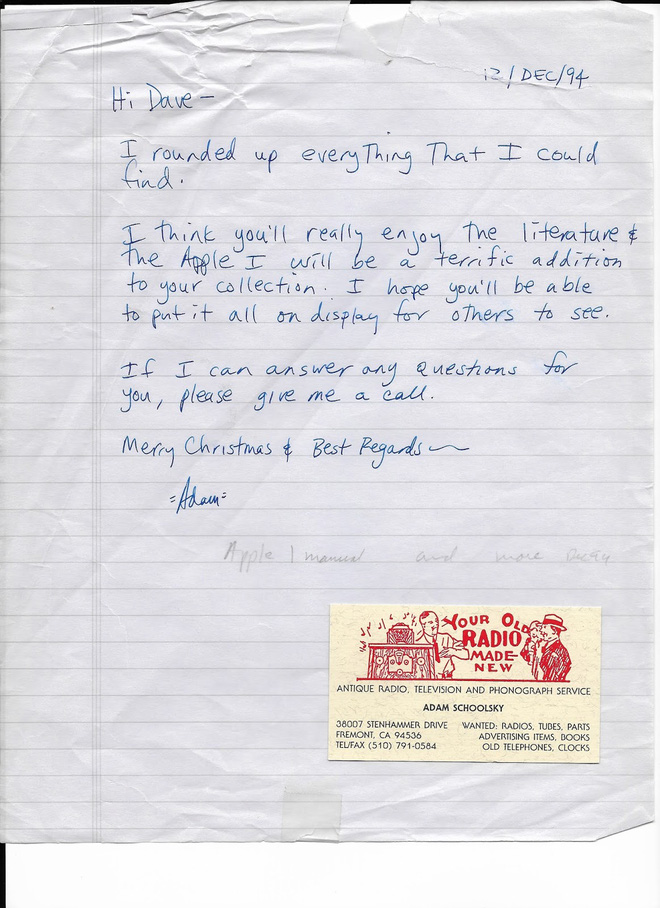 12/DEC/94
Hi Dave —
I rounded up everything that I could
find.
I think you'll really enjoy the literature &
the Apple I will be a terrific addition
to your collection. I hope you'll be able
to put it all on display for others to see.
If I can answer any questions for
you, please give me a call.
Merry Christmas & Best Regards
=Adam=
Apple 1 manual and more Dec 94
YOUR OLD
RADIO
MADE
NEW
ANTIQUE RADIO, TELEVISION AND PHONOGRAPH SERVICE
ADAM SCHOOLSKY
38007 STENHAMMER DRIVE
FREMONT, CA 94536
TEL/FAX (510) 791-0584
WANTED: RADIOS, TUBES, PARTS
ADVERTISING ITEMS, BOOKS
OLD TELEPHONES, CLOCKS